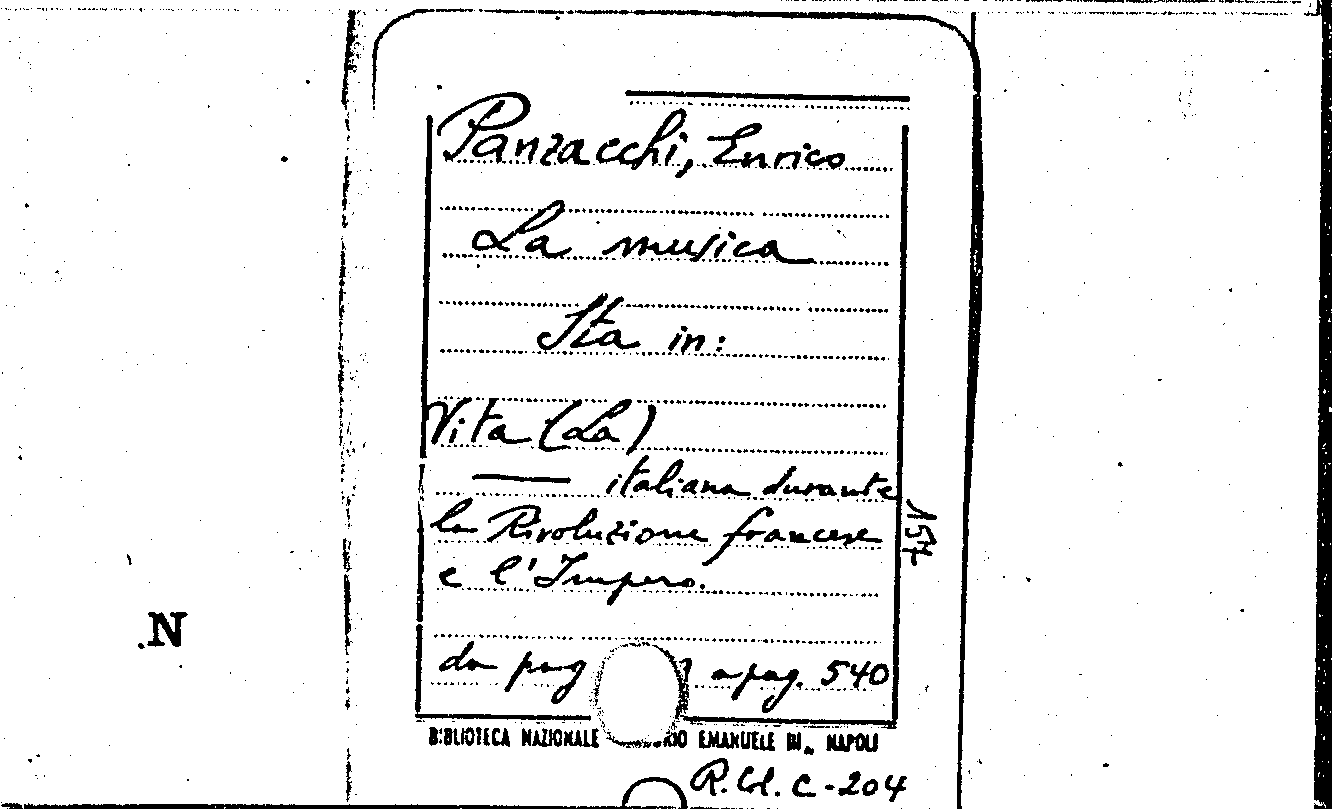 Panzacchi, Enrico
La musica
Sta in:
Vita (La)
— italiana durante
la Rivoluzione francese
e l'Impero.
157
da pag a pag. 540
BIBLIOTECA NAZIONALE EMANUELE III„ NAPOLI
R. Col. C - 204
N